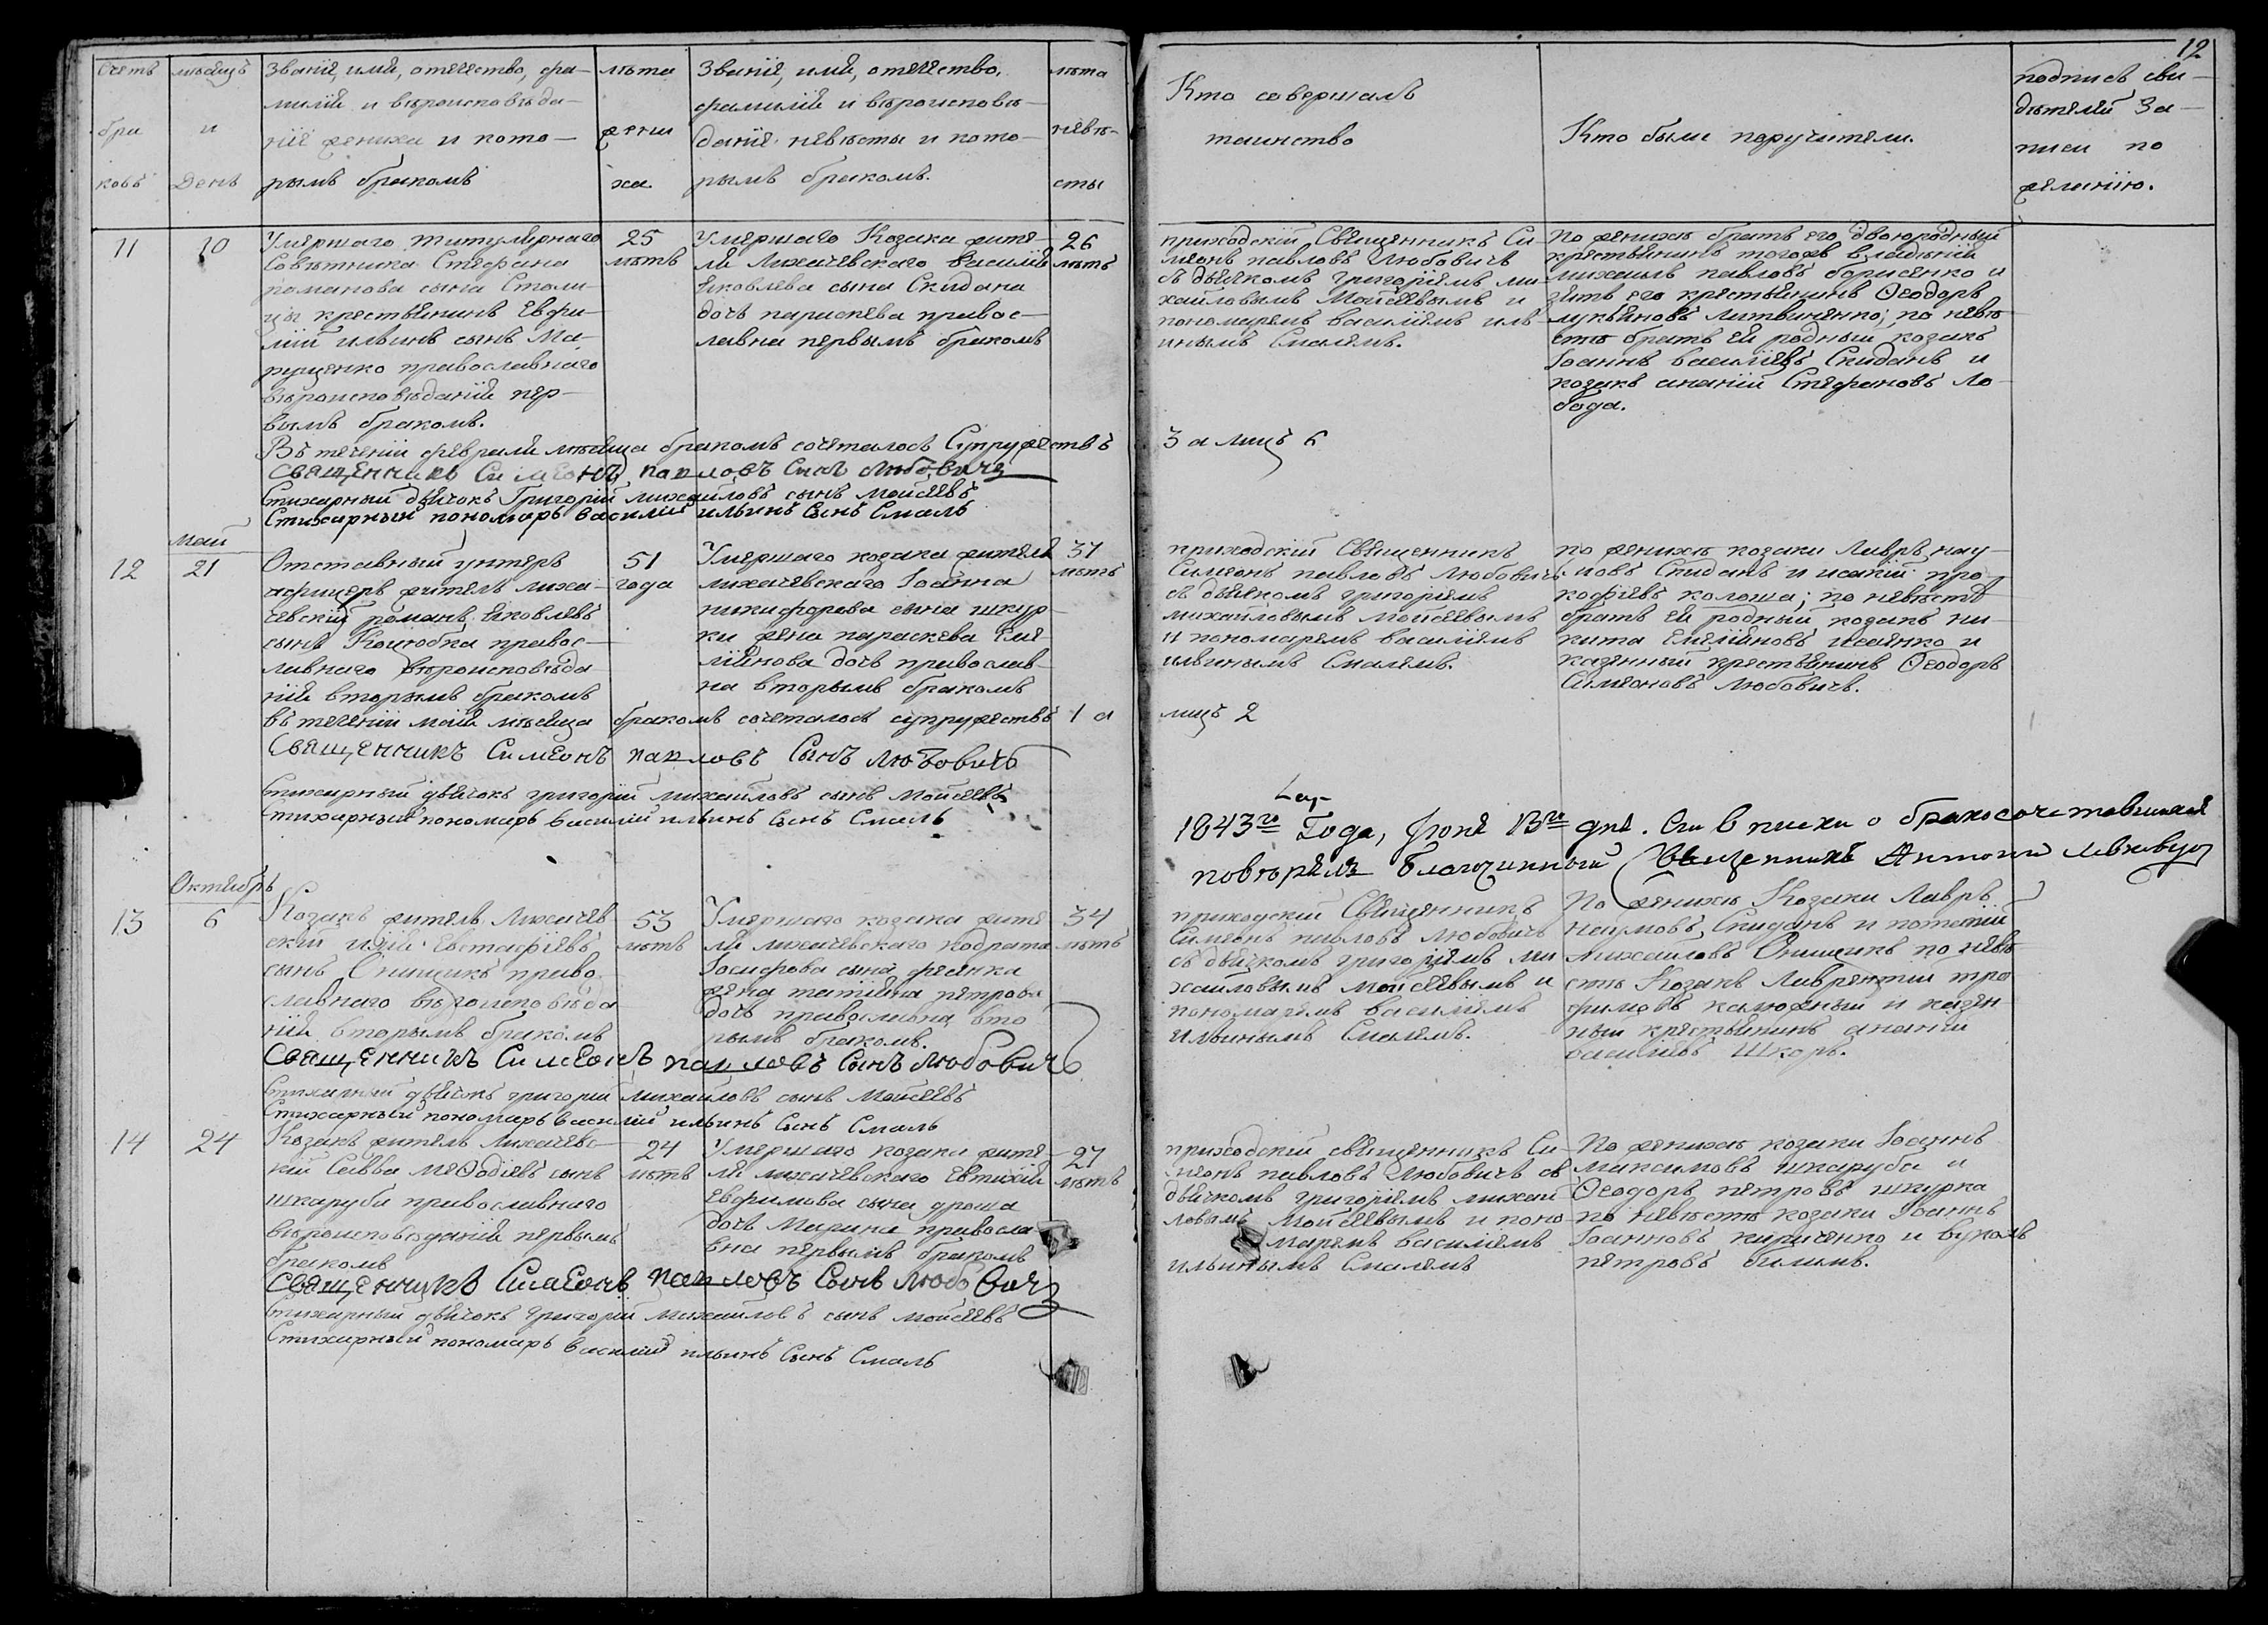 12
Счетъ
бра
ковъ
мѣсяцъ
и
День
Званіе, имя, отечество, фа-
милія и вѣроисповѣда-
ніе жениха и кото-
рымъ бракомъ
лѣта
жени
ха.
Званіе, имя, отечество,
фамилія и вѣроисповѣ-
даніе невѣсты и кото-
рымъ бракомъ.
лѣта
невѣ-
сты
Кто совершалъ
таинство
Кто были поручители.
подпись сви-
дѣтелей за-
писи по
желанію.
11
10
Умершаго титулярнаго
Совѣтника Стефана
романова сына Столи-
цы крестьянинъ Евфи-
мій ильинъ сынъ Ма-
рущенко православнаго
вѣроисповѣданія пер-
вымъ бракомъ.
25
лѣтъ
Умершаго Козака жите-
ля Лихачевскаго василія
яковлева сына Скидана
дочь параскева правос-
лавна первымъ бракомъ
26
лѣтъ
приходскій Священникъ Си-
меонъ павловъ Любовичъ
съ дьячкомъ григоріемъ ми-
хайловымъ Моисеевымъ и
пономаремъ василіемъ иль
инымъ Смалемъ.
По женихѣ братъ его двоюродный
крестьянинъ тогожъ владѣнія
михаилъ павловъ борисенко и
зять его крестьянинъ Ѳеодоръ
лукьяновъ литвиненко; по невѣ
стѣ братъ ея родный козакъ
Іоаннъ васильевъ Скиданъ и
козакъ ананій Стефановъ Ло-
бода.
Въ теченіи февраля мѣсяца бракомъ сочеталось Супружествъ
3 а лицъ 6
Священникъ Симеонъ павловъ Сынъ Любовичъ
Стихарный дьячокъ Григорій михайловъ сынъ моисеевъ
Стихарный пономарь василій ильинъ Сынъ Смаль
май
12
21
Отставный унтеръ
офицеръ житель лиха-
чевскій романъ яковлевъ
сынъ Коцюбка правос-
лавнаго вѣроисповѣда
нія вторымъ бракомъ
51
года
Умершаго козака жителя
лихачевскаго Іоанна
никифорова сына шкур-
ки жена параскева еме-
ліянова дочь православ-
на вторымъ бракомъ
37
лѣтъ
приходскій Священникъ
Симеонъ павловъ Любовичъ
съ дьячкомъ григоріемъ
михайловымъ моисеевымъ
и пономаремъ василіемъ
ильинымъ Смалемъ.
по женихѣ козаки Лавръ нау-
мовъ Скиданъ и исакій про
кофіевъ колоша; по невѣстѣ
братъ ея родный козакъ ни-
кита емеліяновъ исаенко и
казенный крестьянинъ Ѳеодоръ
Симеоновъ любовичъ.
въ теченіи маія мѣсяца бракомъ сочеталось супружествъ 1 а
лицъ 2
Священникъ Симеонъ павловъ Сынъ Любовичъ
Стихарный дьячокъ григорій михайловъ сынъ Моисеевъ
Стихарный пономарь василій ильинъ Сынъ Смаль
1843го Года, Іюня 13го дня. Сіи вписки о бракосочетавшихся
повѣрялъ Благочинный Священникъ Антоній
Октябрь
13
6
Козакъ житель Лихачев
скій илія Евстафіевъ
сынъ Онищикъ право
славнаго вѣроисповѣда
нія вторымъ бракомъ
53
лѣтъ
Умершаго козака жите
ля лихачевскаго кодрата
Іосифова сына фесенка
жена татіяна петрова
дочь православна вто
рымъ бракомъ.
34
лѣтъ
приходскій Священникъ
Симеонъ павловъ любовичъ
съ дьячкомъ григоріемъ ми
хайловымъ моисеевымъ и
пономаремъ василіемъ
ильинымъ Смалемъ.
По женихѣ Козаки Лавръ
наумовъ Скиданъ и потапій
михайловъ Онищикъ по невѣ
стѣ Козакъ Лаврентій тро
фимовъ калюжный и казен
ный крестьянинъ ананій
василіевъ Шкоръ.
Священникъ Симеонъ павловъ Сынъ Любовичъ
Стихарный дьячокъ григорій михайловъ сынъ Моисеевъ
Стихарный пономарь василій ильинъ Сынъ Смаль
14
24
Козакъ житель лихачевс-
кій Савва меѳодіевъ сынъ
шкаруба православнаго
вѣроисповѣданія первымъ
бракомъ
24
лѣтъ
Умершаго козака жите-
ля лихачевскаго Евтихія
Евфимова сына
дочь Марина правосла
вна первымъ бракомъ
27
лѣтъ
приходскій священникъ Си-
меонъ павловъ Любовичъ съ
дьячкомъ григоріемъ михай
ловымъ Моисеевымъ и поно
маремъ василіемъ
ильинымъ Смалемъ
По женихѣ козаки Іоаннъ
максимовъ шкаруба и
Ѳеодоръ петровъ шкурка
по невѣстѣ козаки Іоаннъ
Іоанновъ кириченко и вуколъ
петровъ билымъ.
Священникъ Симеонъ павловъ Сынъ Любовичъ
Стихарный дьячокъ григорій михайловъ сынъ моисеевъ
Стихарный пономарь василій ильинъ Сынъ Смаль